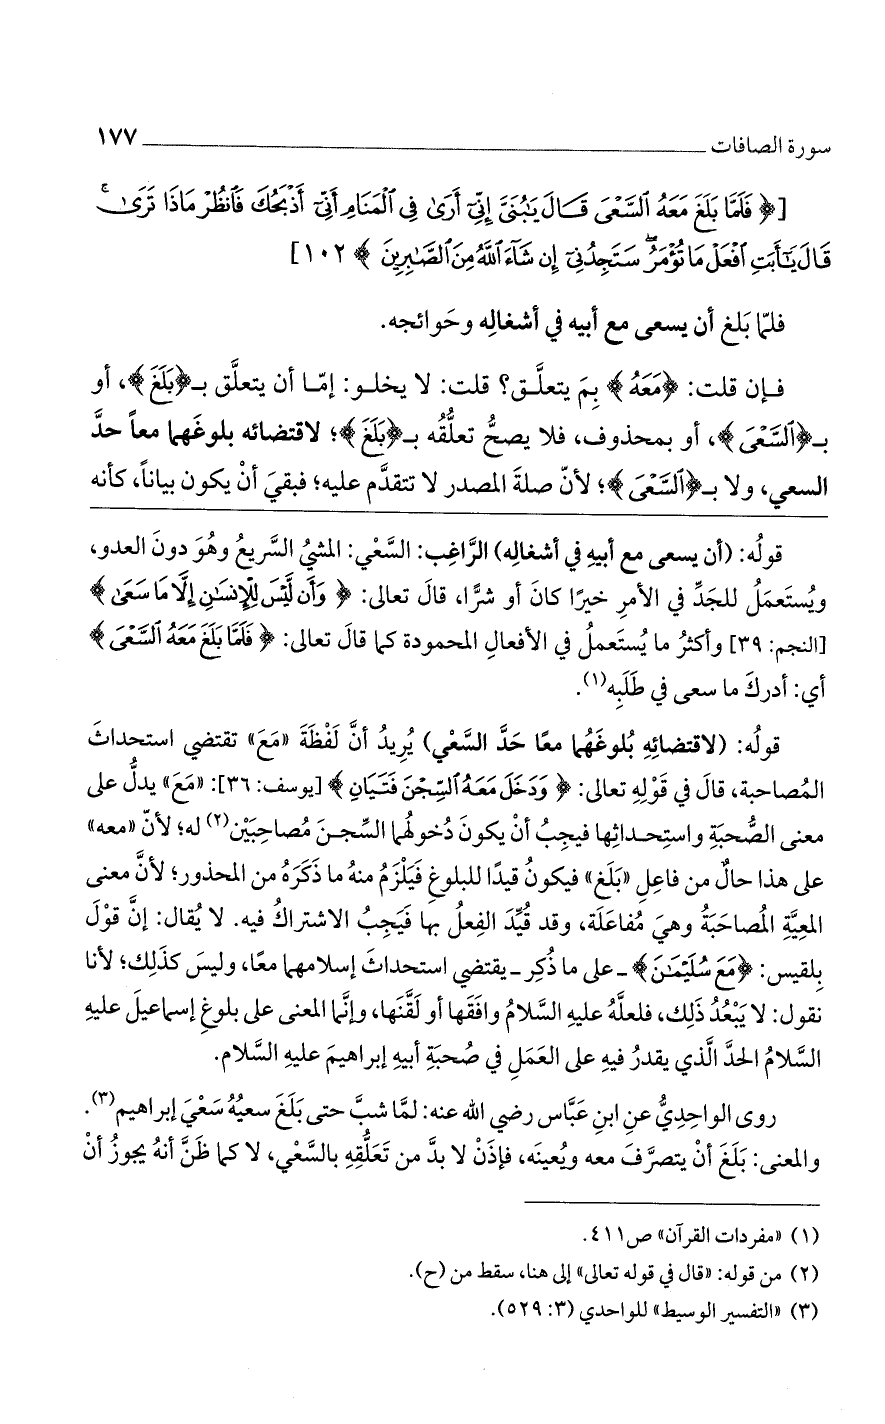 سورة الصافات ١٧٧
[﴿ فَلَمَّا بَلَغَ مَعَهُ ٱلسَّعْىَ قَالَ يَٰبُنَىَّ إِنِّىٓ أَرَىٰ فِى ٱلْمَنَامِ أَنِّىٓ أَذْبَحُكَ فَٱنظُرْ مَاذَا تَرَىٰ ۚ
قَالَ يَٰٓأَبَتِ ٱفْعَلْ مَا تُؤْمَرُ ۖ سَتَجِدُنِىٓ إِن شَآءَ ٱللَّهُ مِنَ ٱلصَّٰبِرِينَ ﴾ ١٠٢]
فلمّا بَلغ أن يسعى مع أبيه في أشغالِه وحَوائجه.
فإن قلت: ﴿مَعَهُ﴾ بِمَ يتعلَّق؟ قلت: لا يخلو: إمّا أن يتعلَّق بـ﴿بَلَغَ﴾، أو
بـ﴿ٱلسَّعْىَ﴾، أو بمحذوف، فلا يصحُّ تعلُّقُه بـ﴿بَلَغَ﴾؛ لاقتضائه بلوغَهما معاً حدَّ
السعي، ولا بـ﴿ٱلسَّعْىَ﴾؛ لأنّ صلةَ المصدر لا تتقدَّم عليه؛ فبقيَ أنْ يكون بياناً، كأنه
قولُه: (أن يسعى مع أبيهِ في أشغالِه) الرَّاغِب: السَّعْي: المشيُ السَّريعُ وهُوَ دونَ العدو،
ويُستَعمَلُ للجَدِّ في الأمرِ خيرًا كانَ أو شرًّا، قالَ تعالى: ﴿ وَأَن لَّيْسَ لِلْإِنسَٰنِ إِلَّا مَا سَعَىٰ ﴾
[النجم: ٣٩] وأكثرُ ما يُستَعملُ في الأفعالِ المحمودة كما قالَ تعالى: ﴿ فَلَمَّا بَلَغَ مَعَهُ ٱلسَّعْىَ ﴾
أي: أدركَ ما سعى في طَلَبِه(١).
قولُه: (لاقتضائِهِ بُلوغَهُما معًا حَدَّ السَّعْي) يُرِيدُ أنَّ لَفْظَةَ «مَعَ» تقتضي استحداثَ
المُصاحبة، قالَ في قَوْلِهِ تعالى: ﴿ وَدَخَلَ مَعَهُ ٱلسِّجْنَ فَتَيَانِ ﴾ [يوسف: ٣٦]: «مَعَ» يدلُّ على
معنى الصُّحبَةِ واستِحداثِها فيجِبُ أنْ يكونَ دُخولُهما السِّجنَ مُصاحِبَيْن(٢) له؛ لأنّ «معه»
على هذا حالٌ من فاعِلِ «بَلَغ» فيكونُ قيدًا للبلوغِ فَيَلْزَمُ منهُ ما ذَكَرَهُ من المحذور؛ لأنَّ معنى
المعِيَّةِ المُصاحَبَةُ وهيَ مُفاعَلَة، وقد قُيِّدَ الفِعلُ بها فَيَجِبُ الاشتراكُ فيه. لا يُقال: إنَّ قوْلَ
بِلقيس: ﴿مَعَ سُلَيْمَٰنَ﴾ ـ على ما ذُكِر ـ يقتضي استحداثَ إسلامِهما معًا، وليسَ كذلِك؛ لأنا
نقول: لا يَبْعُدُ ذَلِك، فلعلَّهُ عليهِ السَّلامُ وافَقَها أو لَقَّنَها، وإنَّما المعنى على بلوغِ إسماعيلَ عليهِ
السَّلامُ الحدَّ الَّذي يقدرُ فيهِ على العَمَلِ في صُحبَةِ أبيهِ إبراهيمَ عليهِ السَّلام.
روى الواحِدِيُّ عنِ ابنِ عَبَّاس رضي الله عنه: لمَّا شبَّ حتى بَلَغَ سعيُهُ سَعْيَ إبراهيم(٣).
والمعنى: بَلَغَ أنْ يتصرَّفَ معه ويُعينَه، فإذَنْ لا بدَّ من تَعَلُّقِهِ بالسَّعْي، لا كما ظَنَّ أنهُ يجوزُ أنْ
(١) «مفردات القرآن» ص٤١١.
(٢) من قوله: «قال في قوله تعالى» إلى هنا، سقط من (ح).
(٣) «التفسير الوسيط» للواحدي (٣: ٥٢٩).